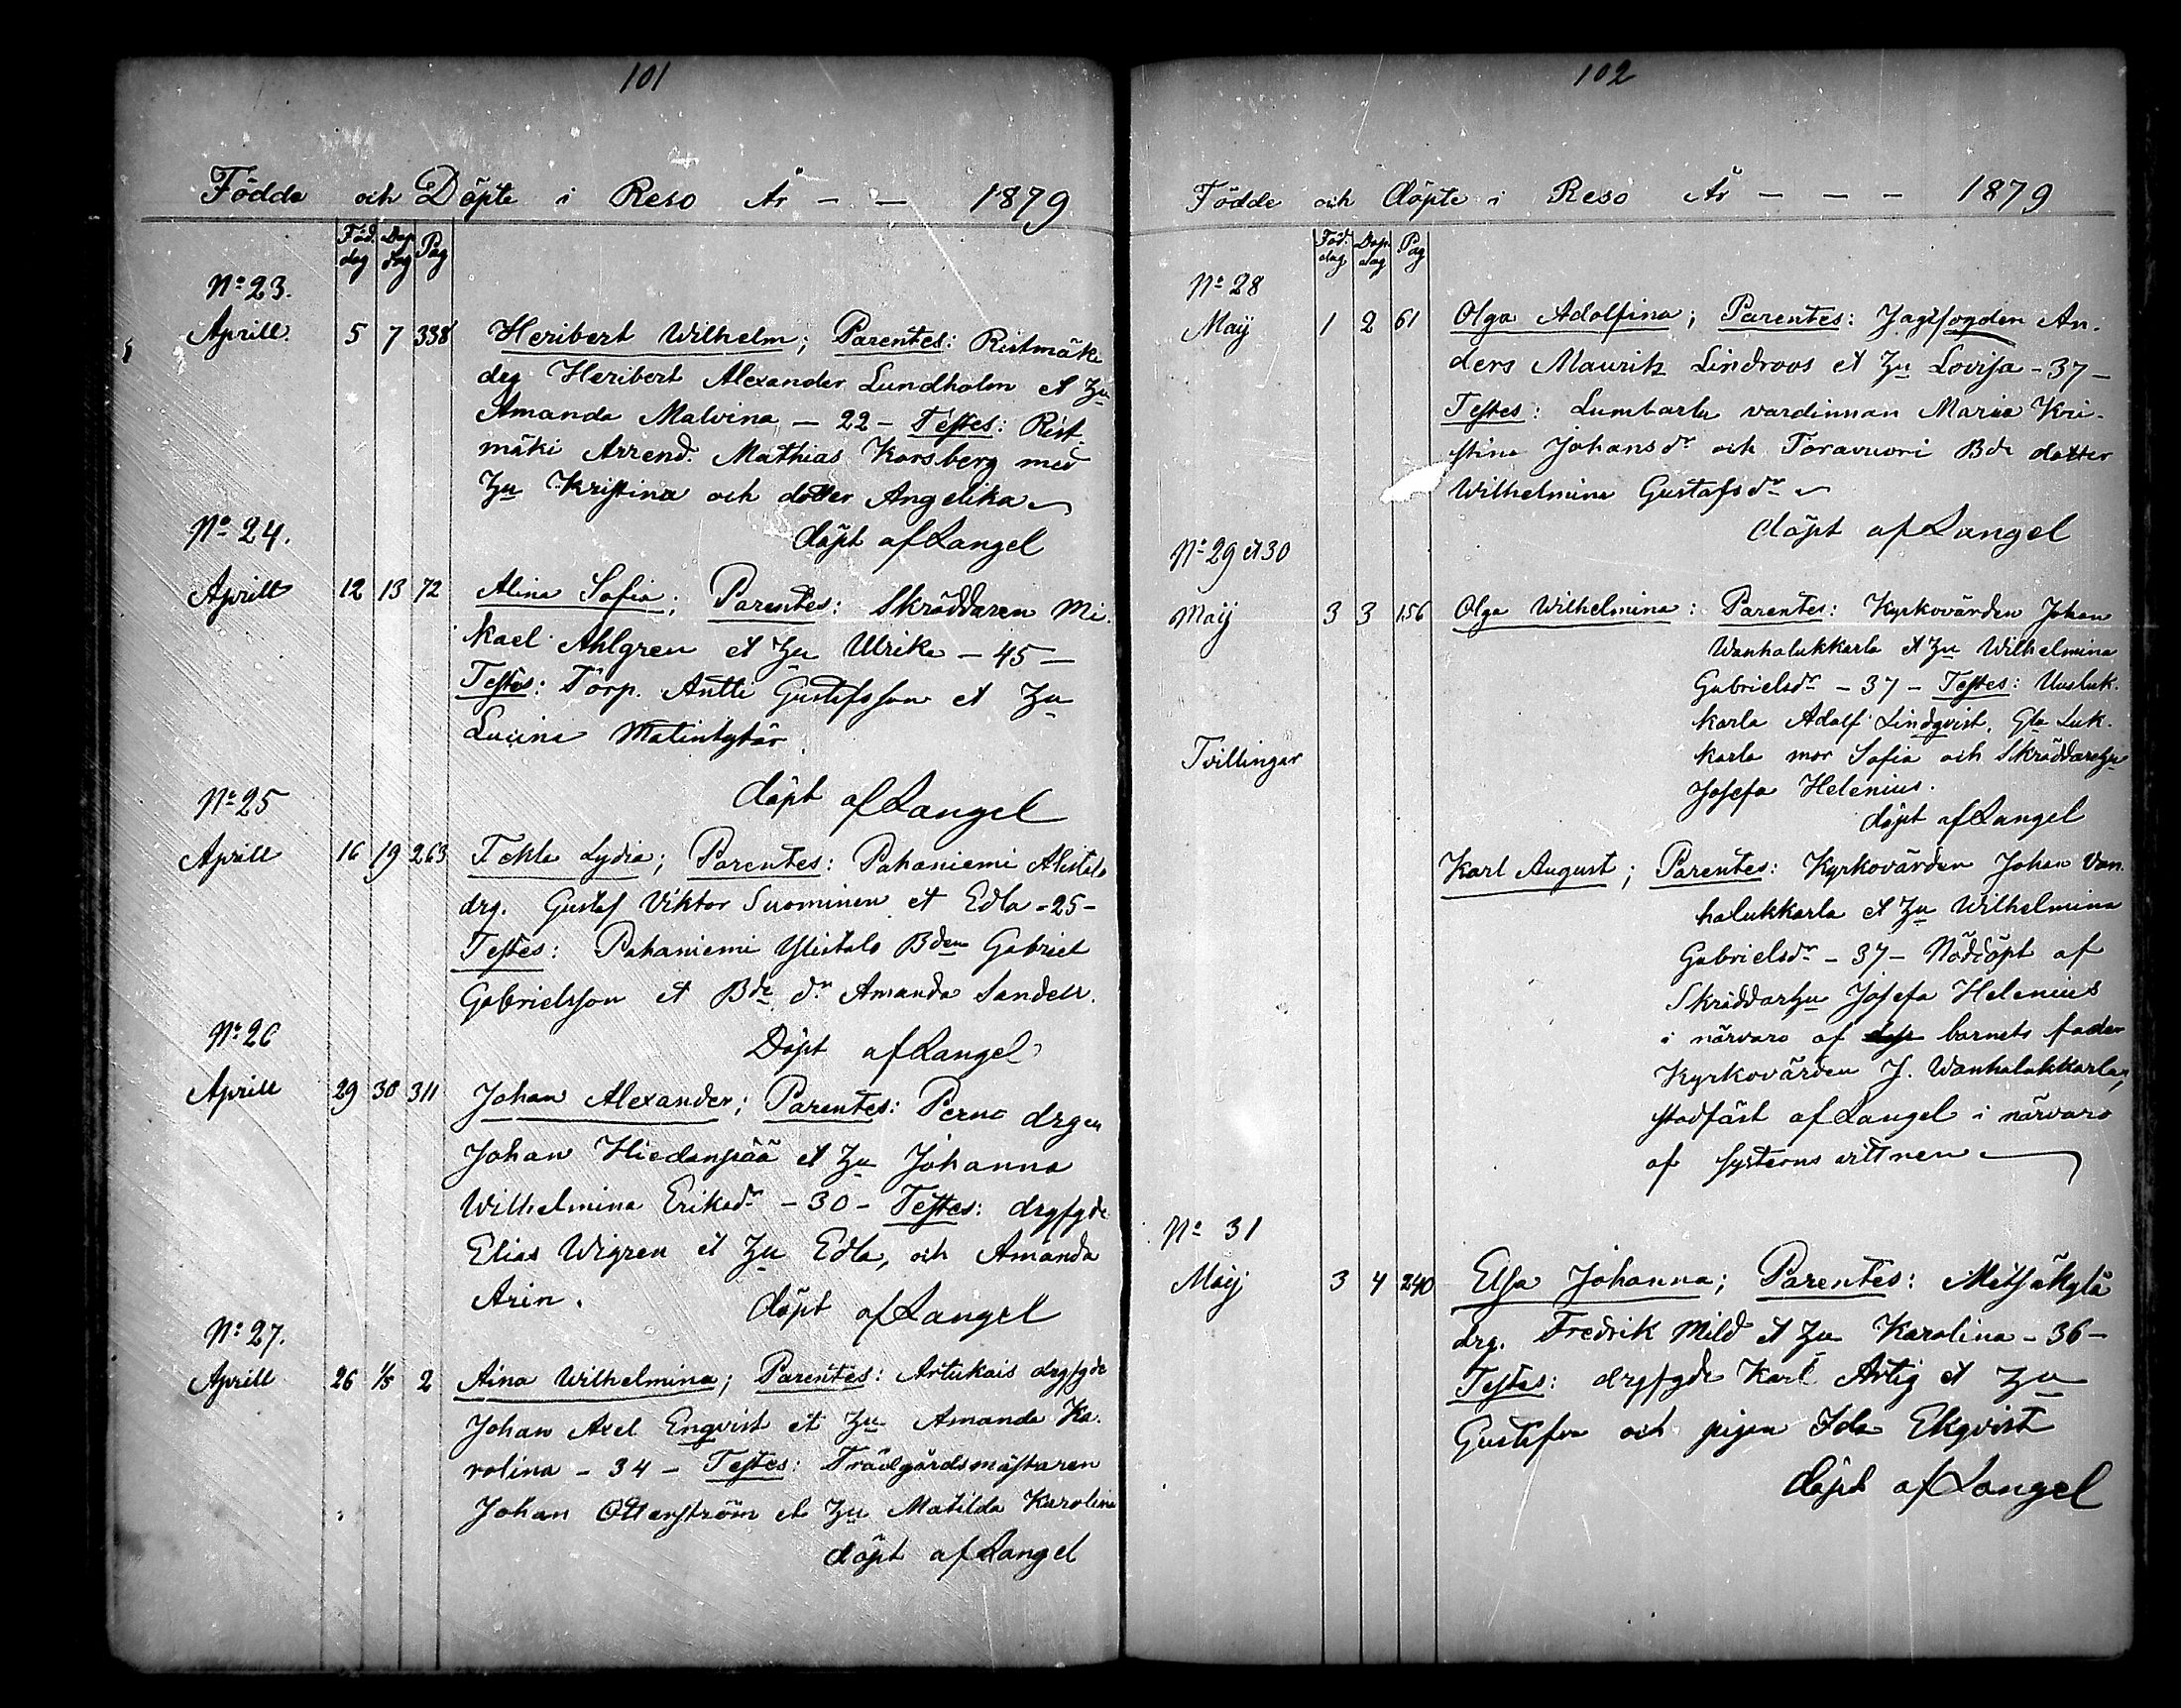 101
Födde och Döpte i Reso År - - 1879
Föd. dag Dop dag Pag
No 23.
Aprill. 5 7 338 Heribert Wilhelm; Parentes: Ristmäki
drg Heribert Alexander Lundholm et Hu
Amanda Malvina - 22 - Testes: Rist-
mäki Arrend. Mathias Korsberg med
Hu Kristina och dotter Angelika
döpt af Langel
No 24.
Aprill 12 13 72 Alina Sofia; Parentes: Skräddaren Mi-
kael Ahlgren et Hu Ulrika - 45 -
Testes: Torp. Antti Gustafsson et Hu
Luuna Matintytär.
döpt af Langel
No 25
Aprill 16 19 263 Tekla Lydia; Parentes: Pahaniemi Alistalo
drg. Gustaf Viktor Suominen et Edla - 25 -
Testes: Pahaniemi Ylistalo Bden Gabriel
Gabrielsson et Bde dr Amanda Sandell.
Döpt af Langel
No 26
Aprill 29 30 311 Johan Alexander; Parentes: Perno drgen
Johan Hiedanpää et Hu Johanna
Wilhelmina Eriksdr - 30 - Testes: drgfgde
Elias Wigren et Hu Edla, och Amanda
Arin. döpt af Langel
No 27.
Aprill 26 1/5 2 Aina Wilhelmina; Parentes: Artukais drgfgde
Johan Axel Engvist et Hu Amanda Ka-
rolina - 34 - Testes: Trädgårdsmästaren
Johan Otterström et Hu Matilda Karolina
döpt af Langel
102
Födde och döpte i Reso År - - - 1879
Föd. dag Dop dag Pag
No 28
Maij 1 2 61 Olga Adolfina; Parentes: Jagtfogden An-
ders Mauritz Lindroos et Hu Lovisa - 37 -
Testes: Lumbarla vardinnan Maria Kri-
stina Johansdr och Toravuori Bde dotter
Wilhelmina Gustafsdr
döpt af Langel
No 29 et 30
Maij 3 3 156 Olga Wilhelmina: Parentes: Kyrkovärden Johan
Wanhalukkarla et Hu Wilhelmina
Gabrielsdr - 37 - Testes: Uusluk-
karla Adolf Lindqvist, Gla Luk-
karla mor Sofia och Skräddarehu
Tvillingar
Josefa Helenius.
döpt af Langel
Karl August; Parentes: Kyrkovärden Johan Van-
halukkarla et Hu Wilhelmina
Gabrielsdr - 37 - Nöddöpt af
Skräddarhu Josefa Helenius
i närvaro af barnets fader
Kyrkovärden J. Wanhalukkarla,
stadfäst af Langel i närvaro
af systerns vittnen
No 31
Maij 3 4 240 Elsa Johanna; Parentes: Metsäkylä
drg. Fredrik Mild et Hu Karolina - 36 -
Testes: drgfgde Karl Artig et Hu
Gustafva och pigan Ida Ekqvist
döpt af Langel